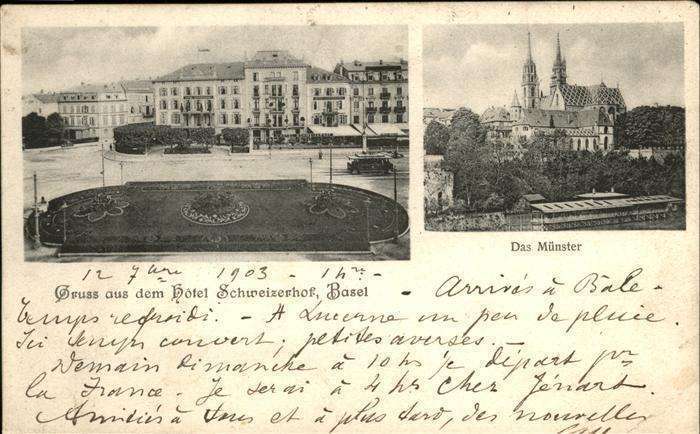 Das Münster
12 7bre 1903 - 1 hr -
Gruss aus dem Hôtel Schweizerhof, Basel
- Arrivés à Bale -
temps refroidi. - A Lucerne un peu de pluie.
Ici temps couvert; petites averses. -
Demain dimanche à 10 hs je départ pr
la France. Je serai à 4 hs chez Jénart.
Amitiés à tous et à plus tard, des nouvelles